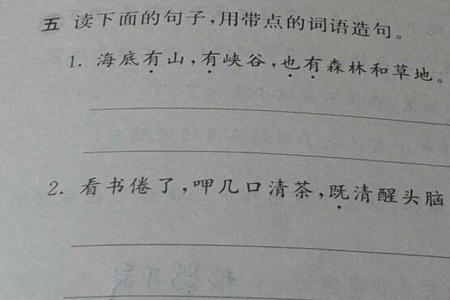 五 读下面的句子,用带点的词语造句。
1. 海底有山,有峡谷,也有森林和草地。
2. 看书倦了,呷几口清茶,既清醒头脑